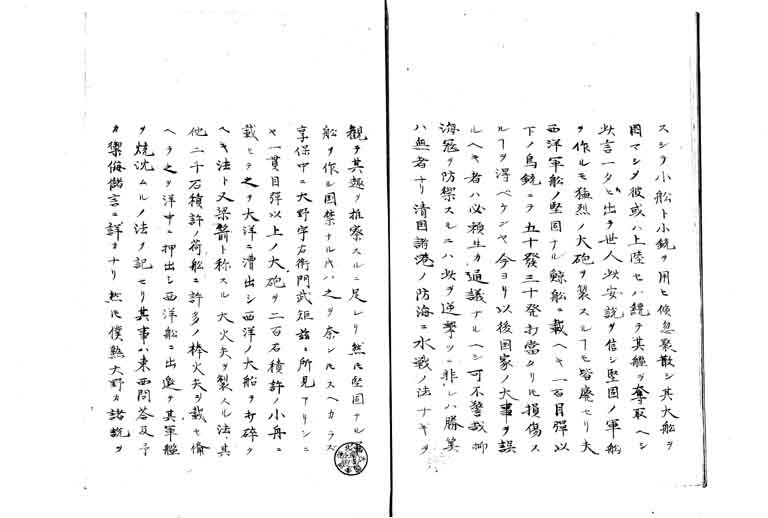 スシヲ小船ト小銃ヲ用ヒ倏忽聚散シ其大船ヲ
困マシメ彼或ハ上陸セハ繞テ其艦ヲ奪取ヘシ
此言一タヒ出テ世人此安説ヲ信シ堅固ノ軍船
ヲ作ルモ猛烈ノ大砲ヲ製スルモ皆廢セリ夫
西洋軍船ノ堅固ナル鯨船ニ載ヘキ一百目彈以
下ノ鳥銃ニテ五十發三十發打當タリトモ損傷ス
ルヿヲ得ベケンヤ今ヨリ以後国家ノ大事ヲ誤
ルヘキ者ハ必頼生カ通議ナルヘシ可不警哉抑
海冦ヲ防禦スルニハ此ヲ逆撃ツニ非レハ勝算
ハ無者ナリ清国諸港ノ防海ニ水戦ノ法ナキヲ
観テ其趣ヲ推察スルニ足レリ然ルニ堅固ナル
船ヲ作ルハ国禁ナル故ハ之ヲ奈ントモスヘカラズ
享保中ニ大野宇右衛門武矩茲ニ所見アリシニ
ヤ一貫目彈以上ノ大砲ヲ二百石積許ノ小舟ニ
載セテ之ヲ大洋ニ漕出シ西洋ノ大船ヲ打碎ク
ヘキ法ト又梁箭ト称スル大火矢ヲ製スル法其
他二千石積許ノ荷船ニ許多ノ棒火矢ヲ載セ備
ヘテ之ヲ洋中ニ押出シ西洋船ニ出逢テ其軍艦
ヲ焼沈ムルノ法ヲ記セリ其事ハ東西問答及予
カ禦侮儲言ニ詳ナリ然ルニ僕熟大野カ諸説ヲ